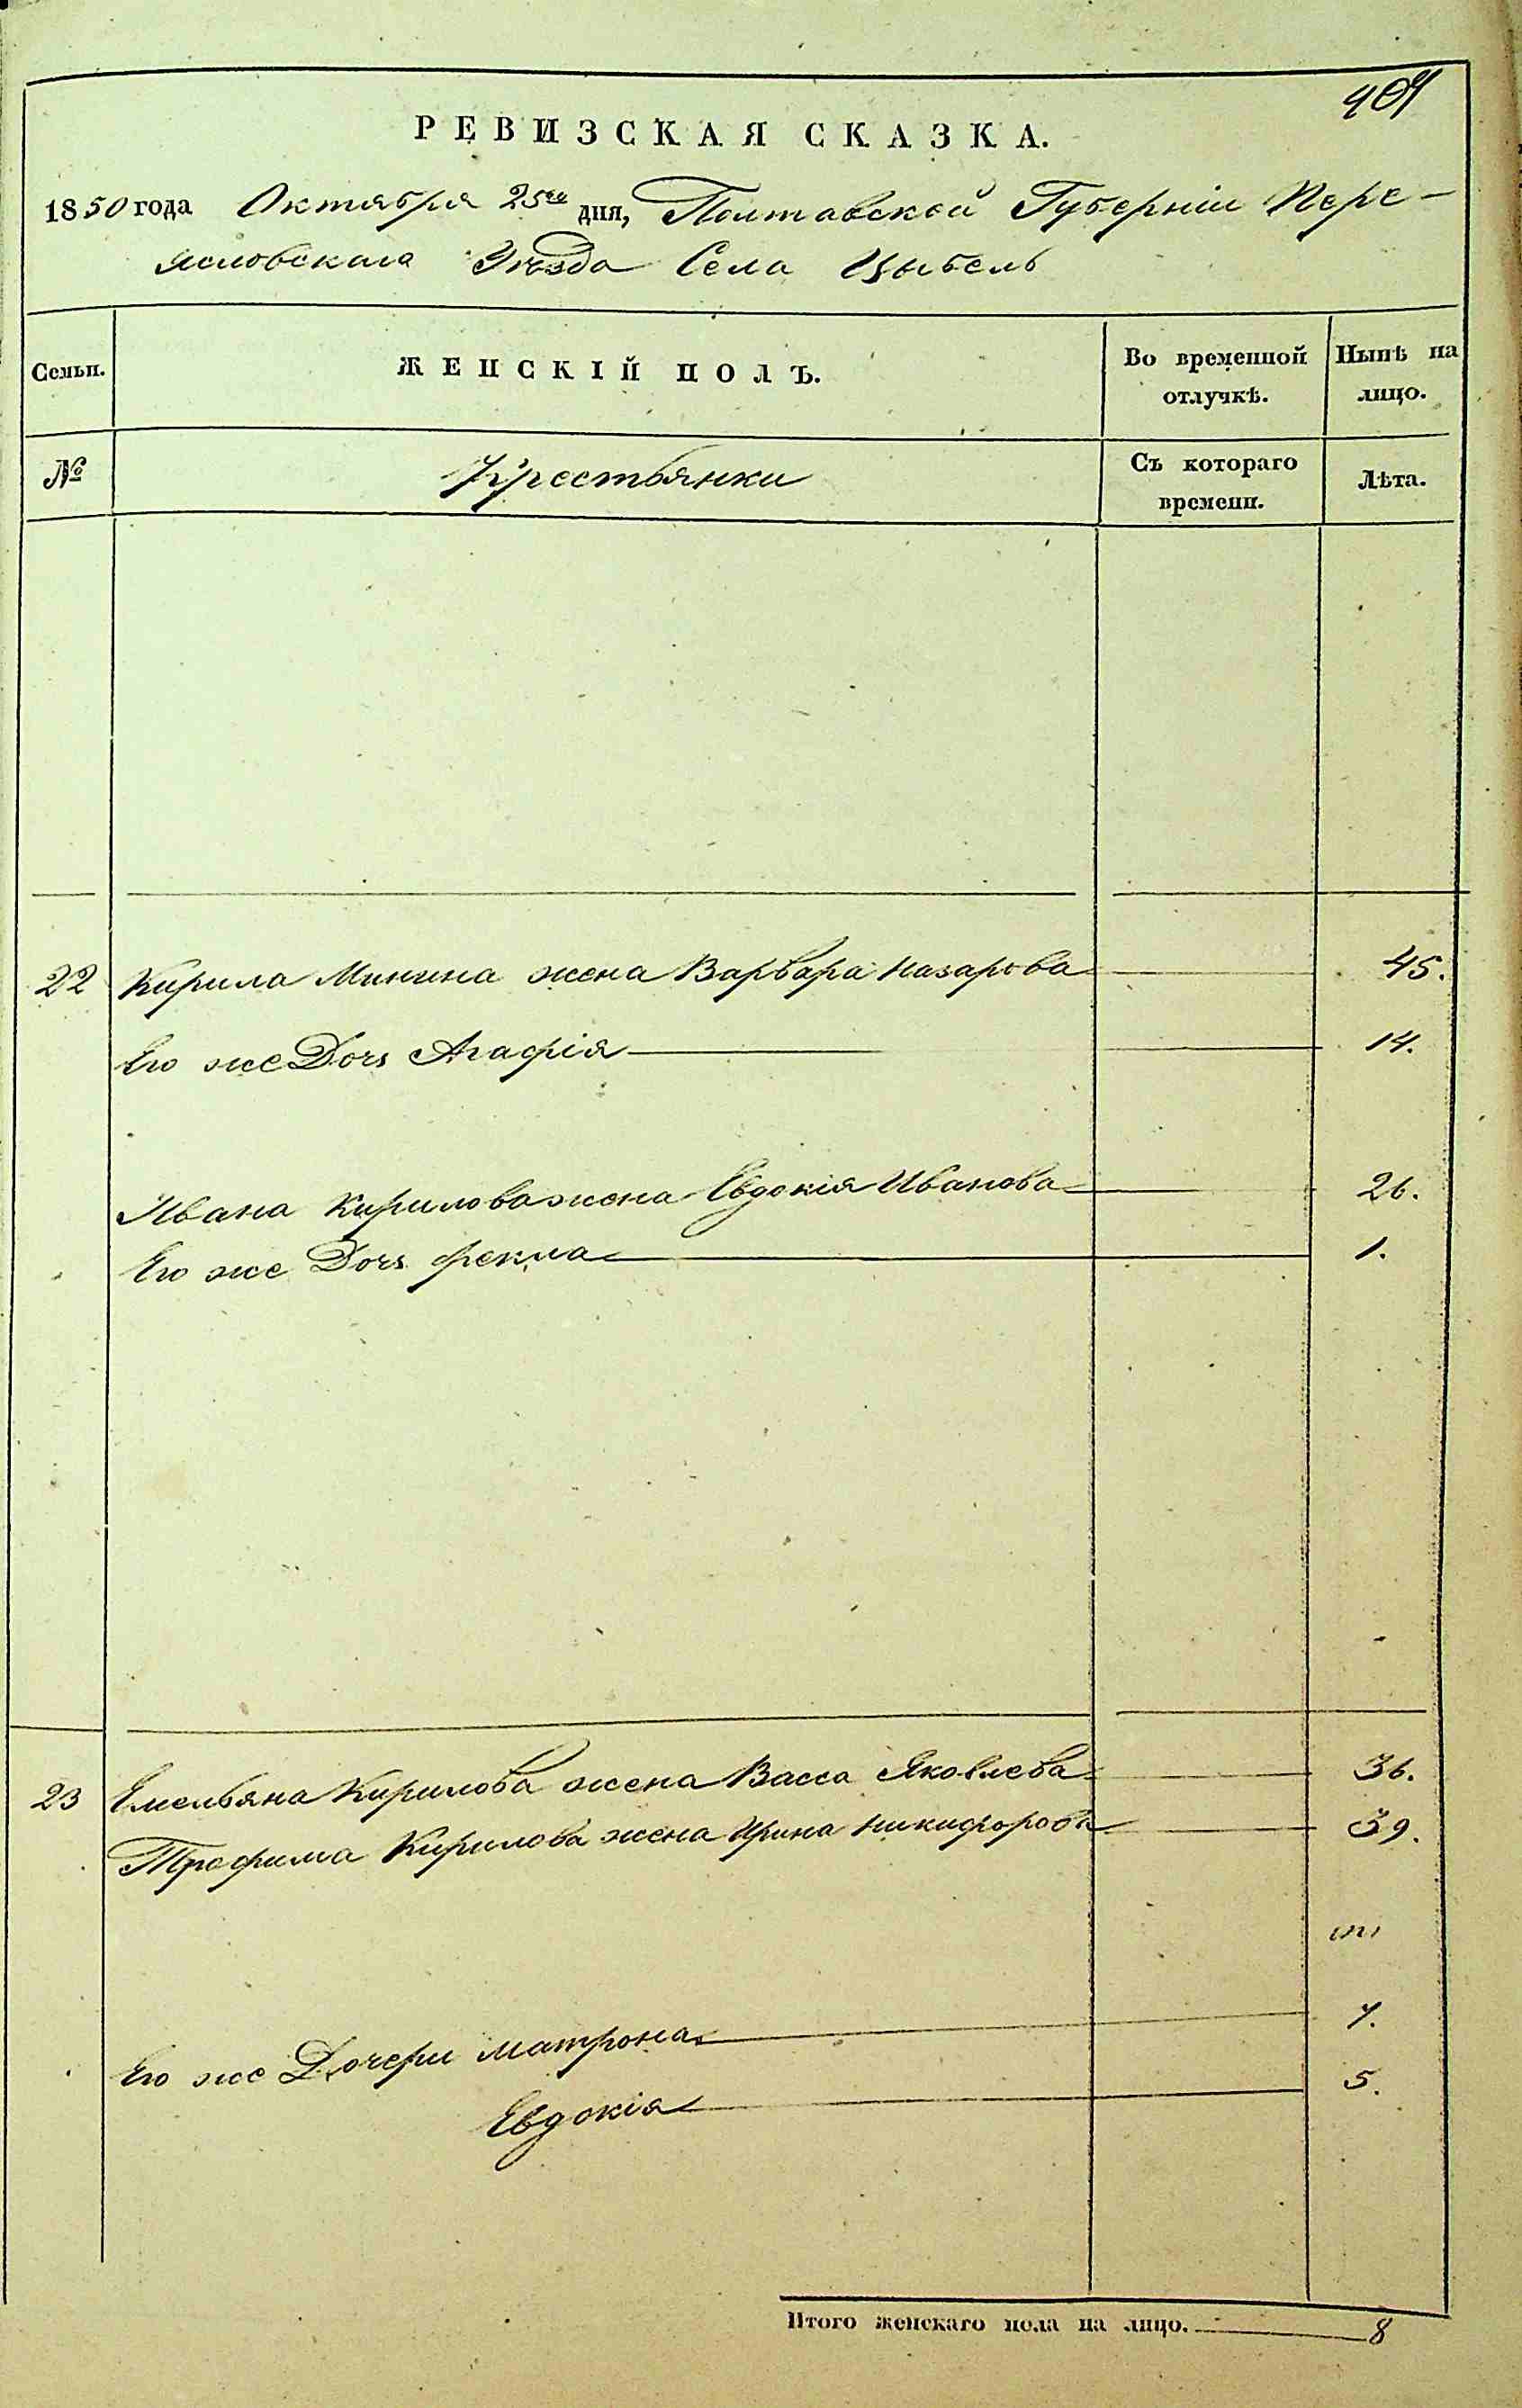 РЕВИЗСКАЯ СКАЗКА.
1850 года Октября 25го дня, Полтавской Губерніи Пере-
яславскаго Уѣзда Села Цыбель
Семьи.
ЖЕНСКІЙ ПОЛЪ.
Во временной отлучкѣ.
Нынѣ на лицо.
№
Крестьянки
Съ котораго времени.
Лѣта.
22 Кирила Минина жена Варвара Назарова 45.
Его же Dочь Агафія 14.
Ивана Кирилова жена Евдокія Иванова 26.
Его же Dочь Фекла 1.
23 Емельяна Кирилова жена Васса Яковлева 36.
Трофима Кирилова жена Ирина Никифорова 39.
Его же Дочери Матрона 7.
Евдокія 5.
Итого женскаго пола на лицо. 8